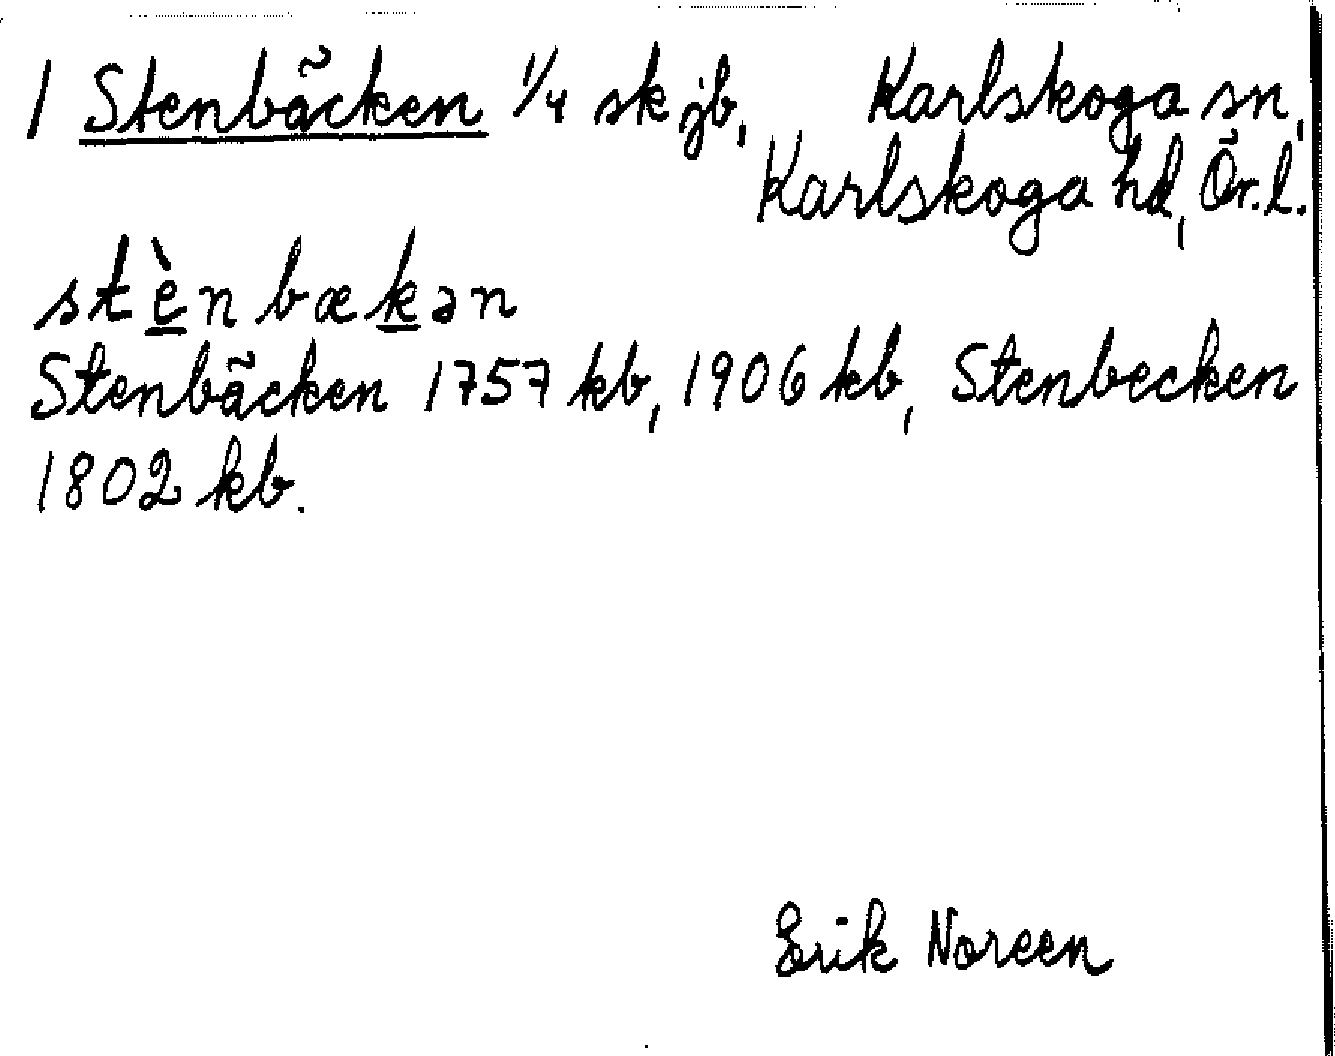 1 Stenbäcken 1/4 sk jb, Karlskoga sn,
Karlskoga hd, Ör.l.
stènbækən
Stenbäcken 1757 kb, 1906 kb, Stenbecken
1802 kb.
Erik Noreen